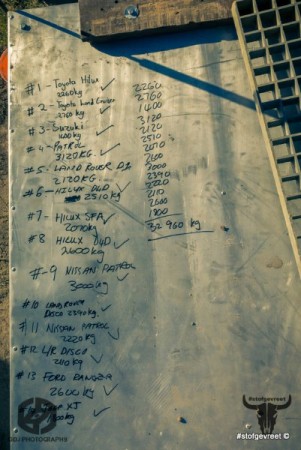 #stofgevreet
#1 - Toyota Hilux
2260kg
#2 - Toyota Land Cruiser
2760 kg
#3 - Suzuki
1400 kg
#4 - PATROL
3120KG.
#5. LAND ROVER D2
2120KG
#6 - HILUX D4D
2510kg
#7 - HILUX SFA
2070kg
#8 HILUX D4D
2600kg
#-9 NISSAN PATROL
3000kg
#10 LANDROVER
DISCO 2390kg
#11 NISSAN PATROL
2220kg
#12 L/R DISCO
2110kg
#13 FORD RANGER
2600 kg
XJ
2260
2760
1400
3120
2120
2510
2070
2600
3000
2390
2220
2110
2600
1800
32 960 kg
PHOTOGRAPHS
#stofgevreet
#stofgevreet ©